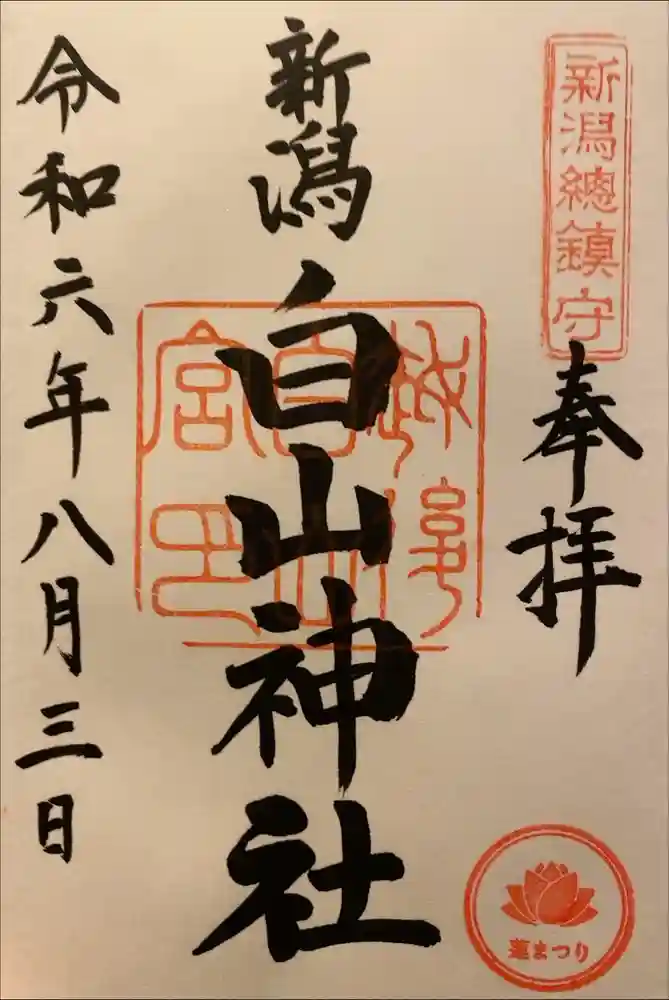 新潟總鎮守
奉拝
新潟白山神社
越後
白山
宮印
令和六年八月三日
蓮まつり